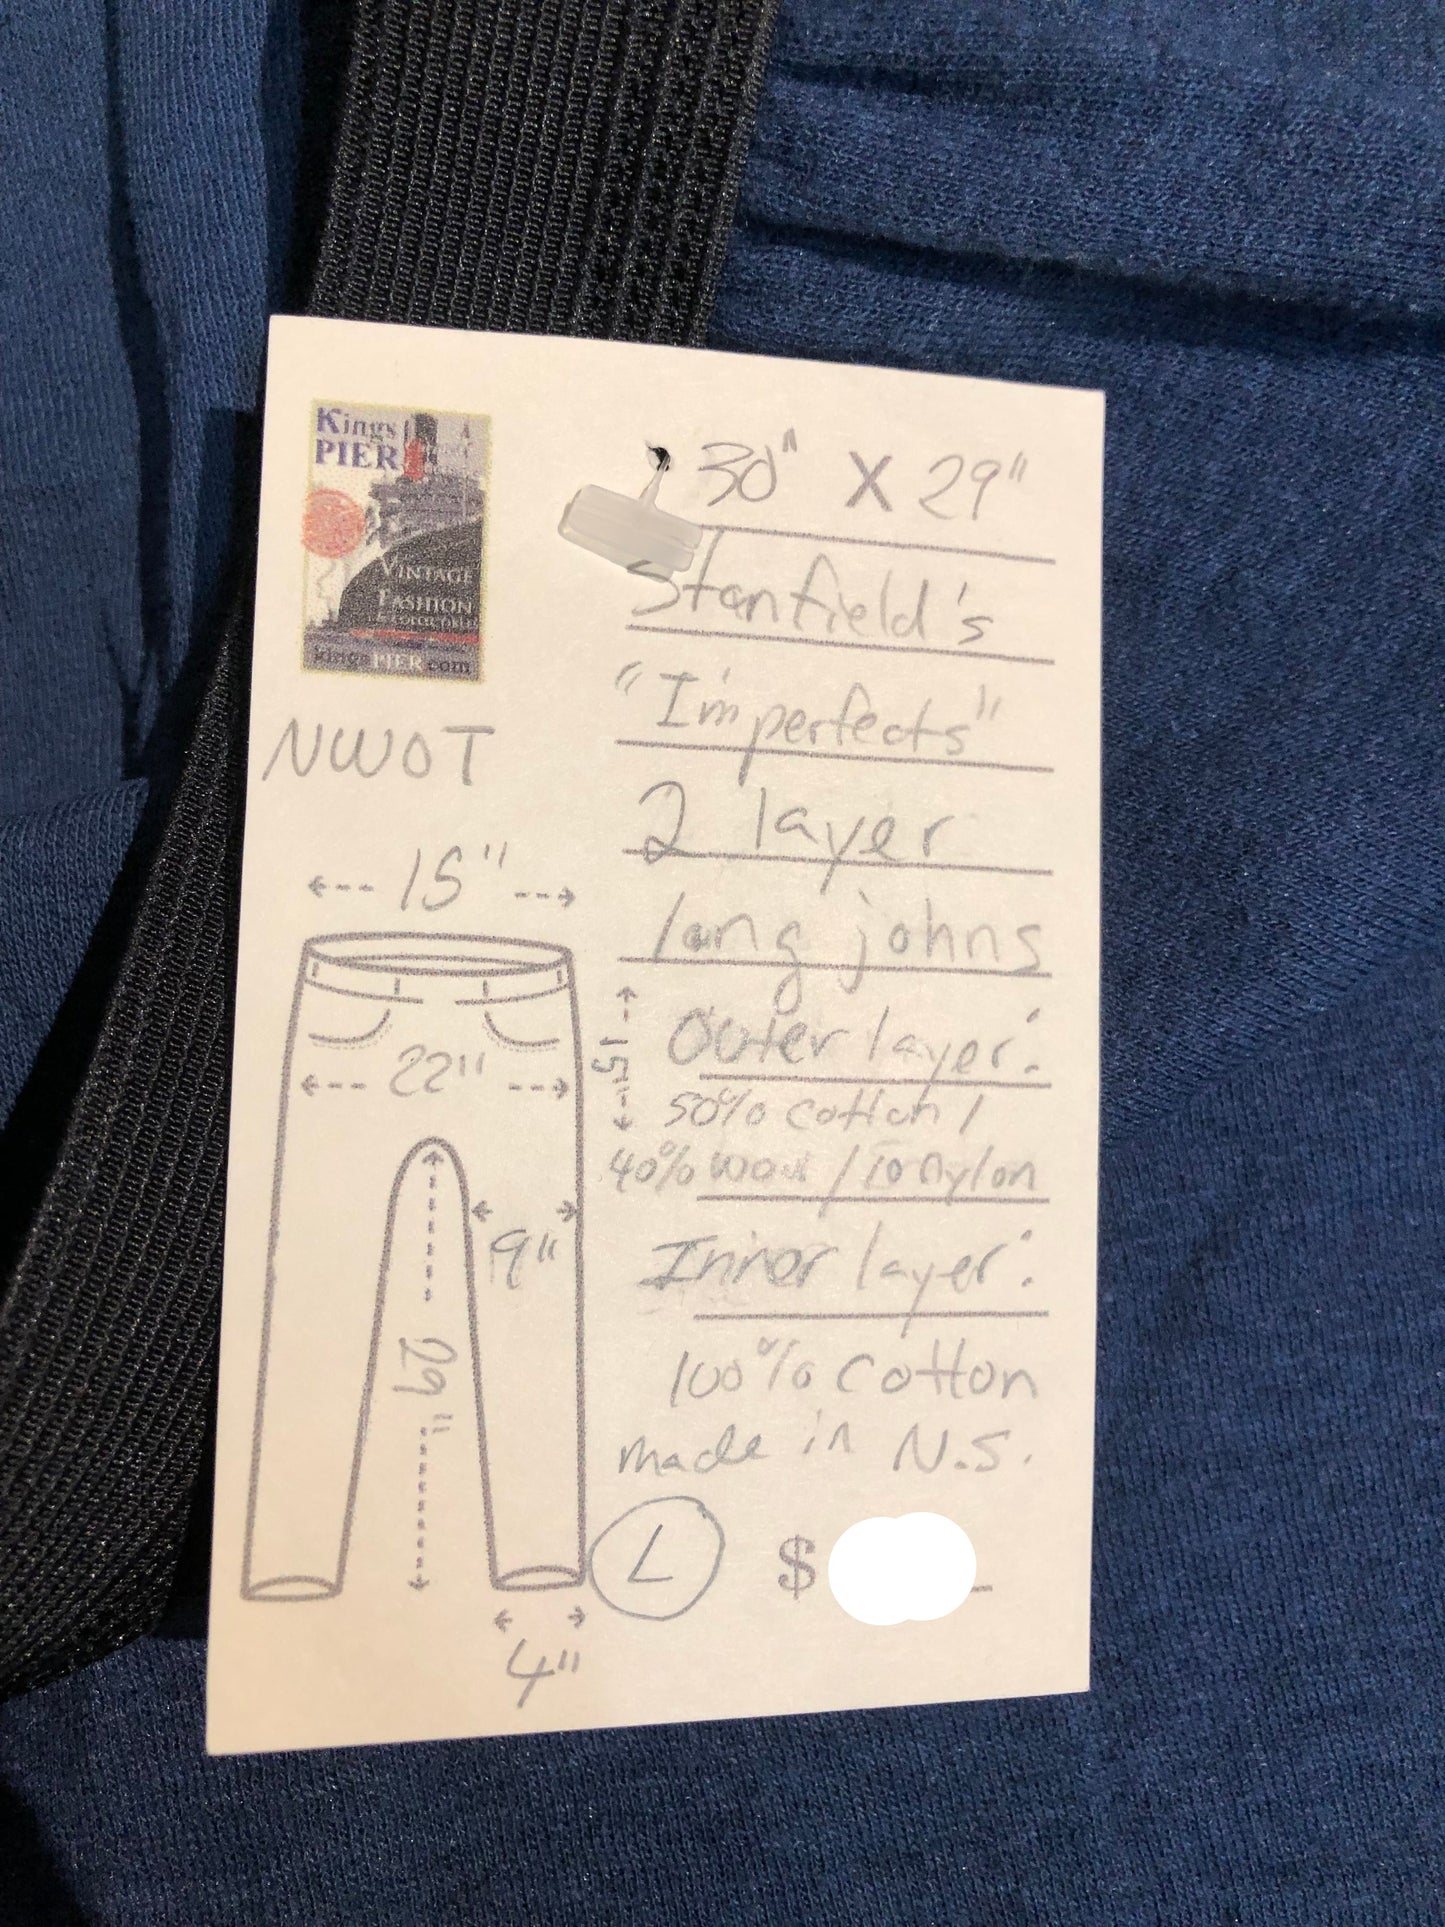 Kings
PIER
VINTAGE
FASHION
kingsPIER.com
30" X 29"
Stanfield's
"Imperfects"
2 layer
long johns
Outer layer:
50% cotton /
40% wool / 10 nylon
Inner layer:
100% cotton
made in N.S.
L
$
NWOT
15"
22"
15"
9"
29"
4"